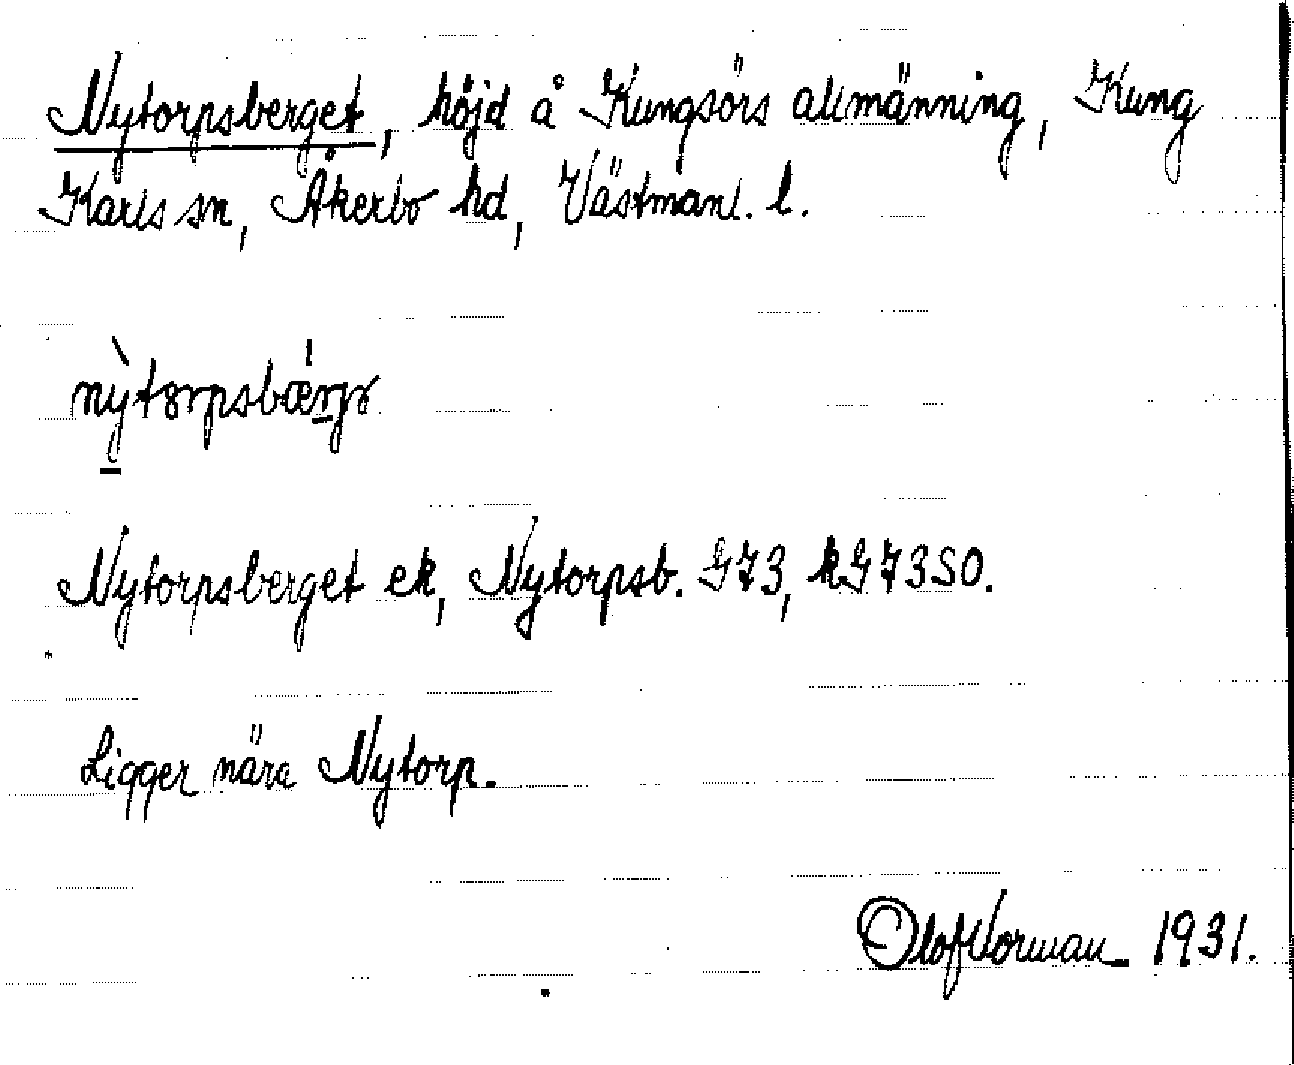 Nytorpsberget, höjd å Kungsörs allmänning, Kung
Karls sn, Åkerbo hd, Västmanl. l.
Nytorpsberget ek, Nytorpsb. G73, kG73SO.
Ligger nära Nytorp.
Olof Norman 1931.